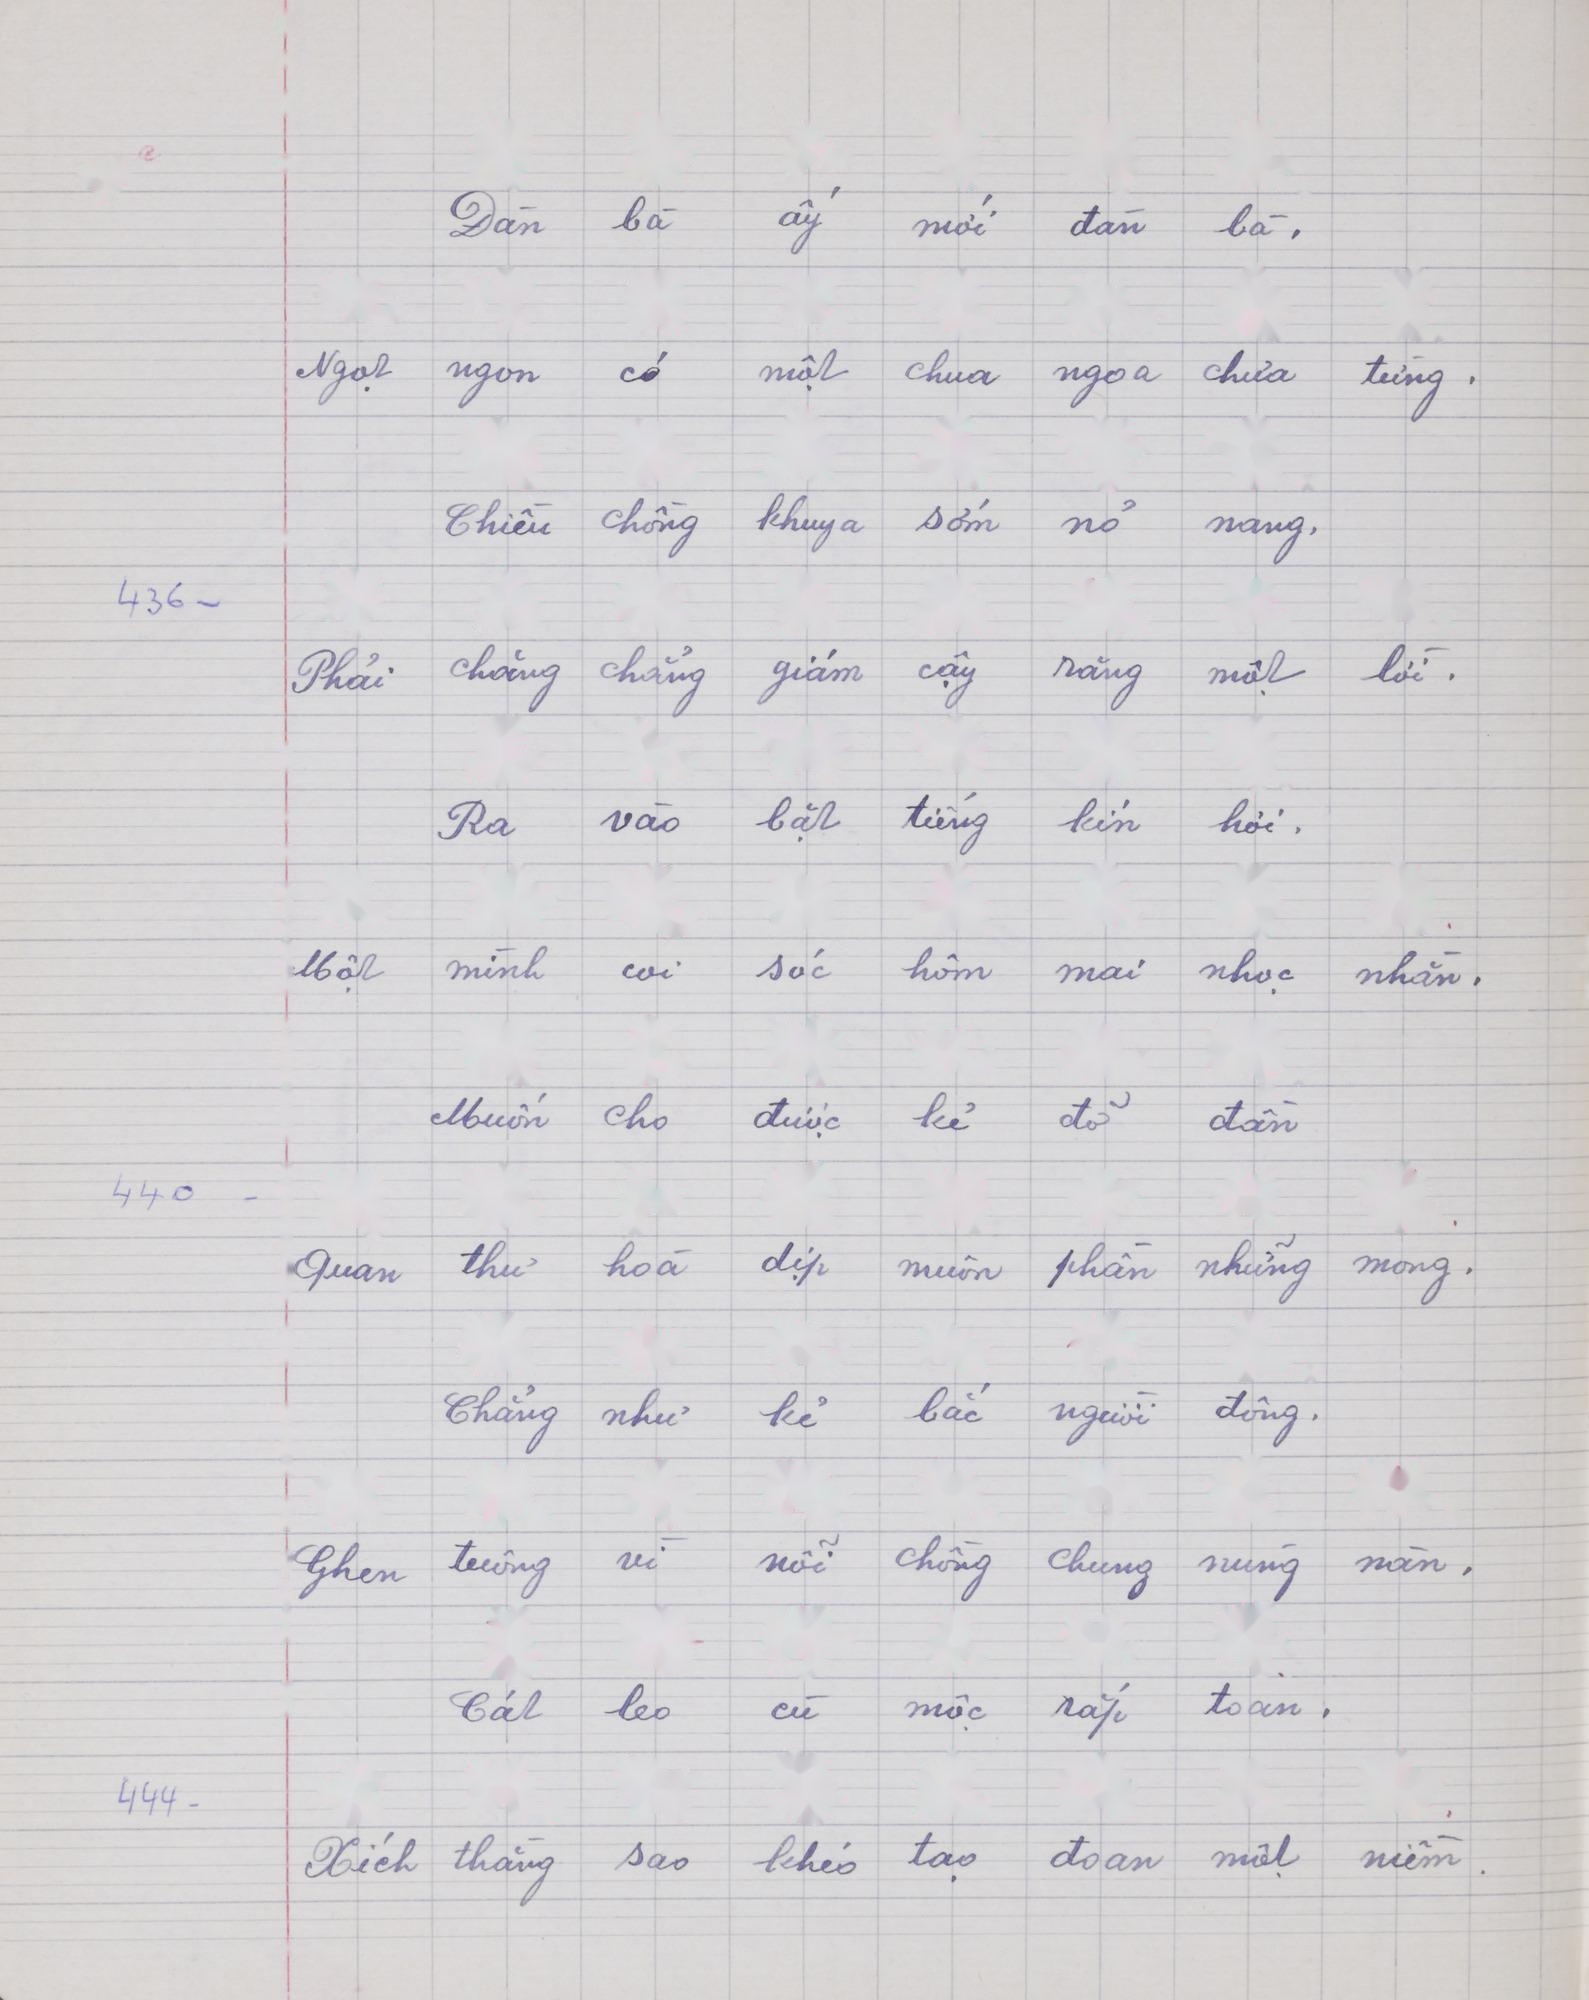 Đàn bà ấy mới đàn bà.
Ngọt ngon có một chua ngoa chưa từng.
Chiều chồng khuya sớm nở nang.
436-
Phải chăng chẳng giám cậy rằng một lời.
Ra vào bặt tiếng kín hơi.
Một mình coi sóc hôm mai nhọc nhằn.
Muốn cho được kẻ đỡ đần
440 -
Quan thư hoà dịp muôn phần những mong.
Chẳng như kẻ bắc người đông.
Ghen tuông vì nỗi chồng chung nung nàn.
Cát leo cù mộc rắp toan.
444-
Xích thằng sao khéo tạo đoan một niềm.